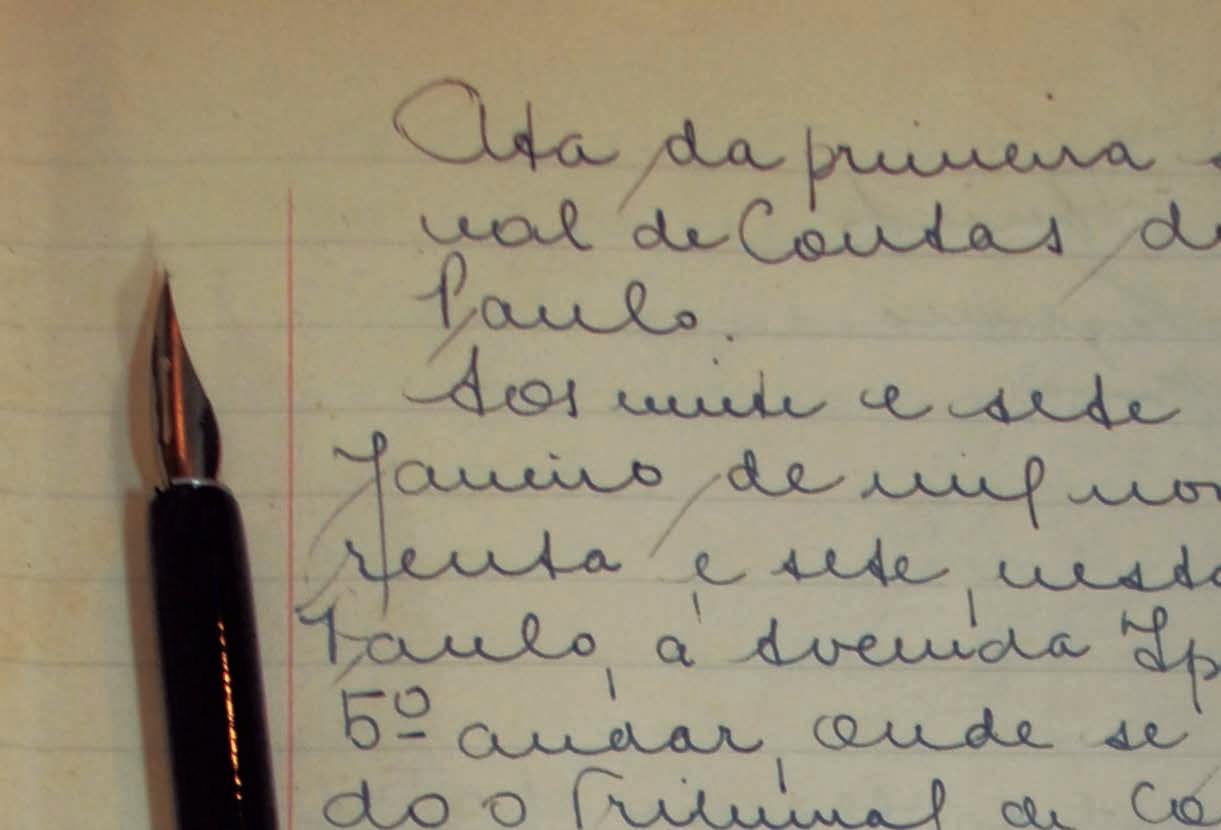 Ata da primeira
nal de Contas d
Paulo.
Aos vinte e sete
Janeiro de mil no
renta e sete, nesta
Paulo, à Avenida Ip
5º andar, onde se
do o Tribunal de Co